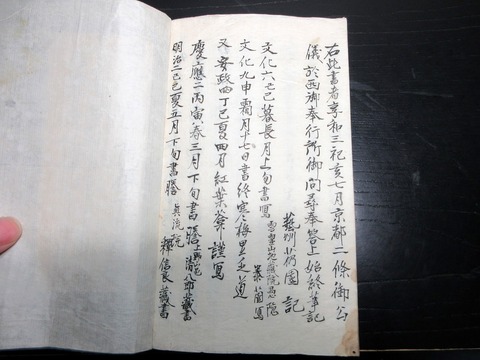 右此書者享和三祀亥七月京都二條御公
儀於西御奉行所御問尋奉答上始終筆記
藝州 園 記
文化六己巳暮長月上旬書寫
文化九申霜月十七日書終寒梅里乏道
又安政四丁巳夏四月紅葉 謹寫
慶應二丙寅春三月下旬書謄 藏書
明治二己巳夏五月下旬書謄 眞流院 釋信良藏書